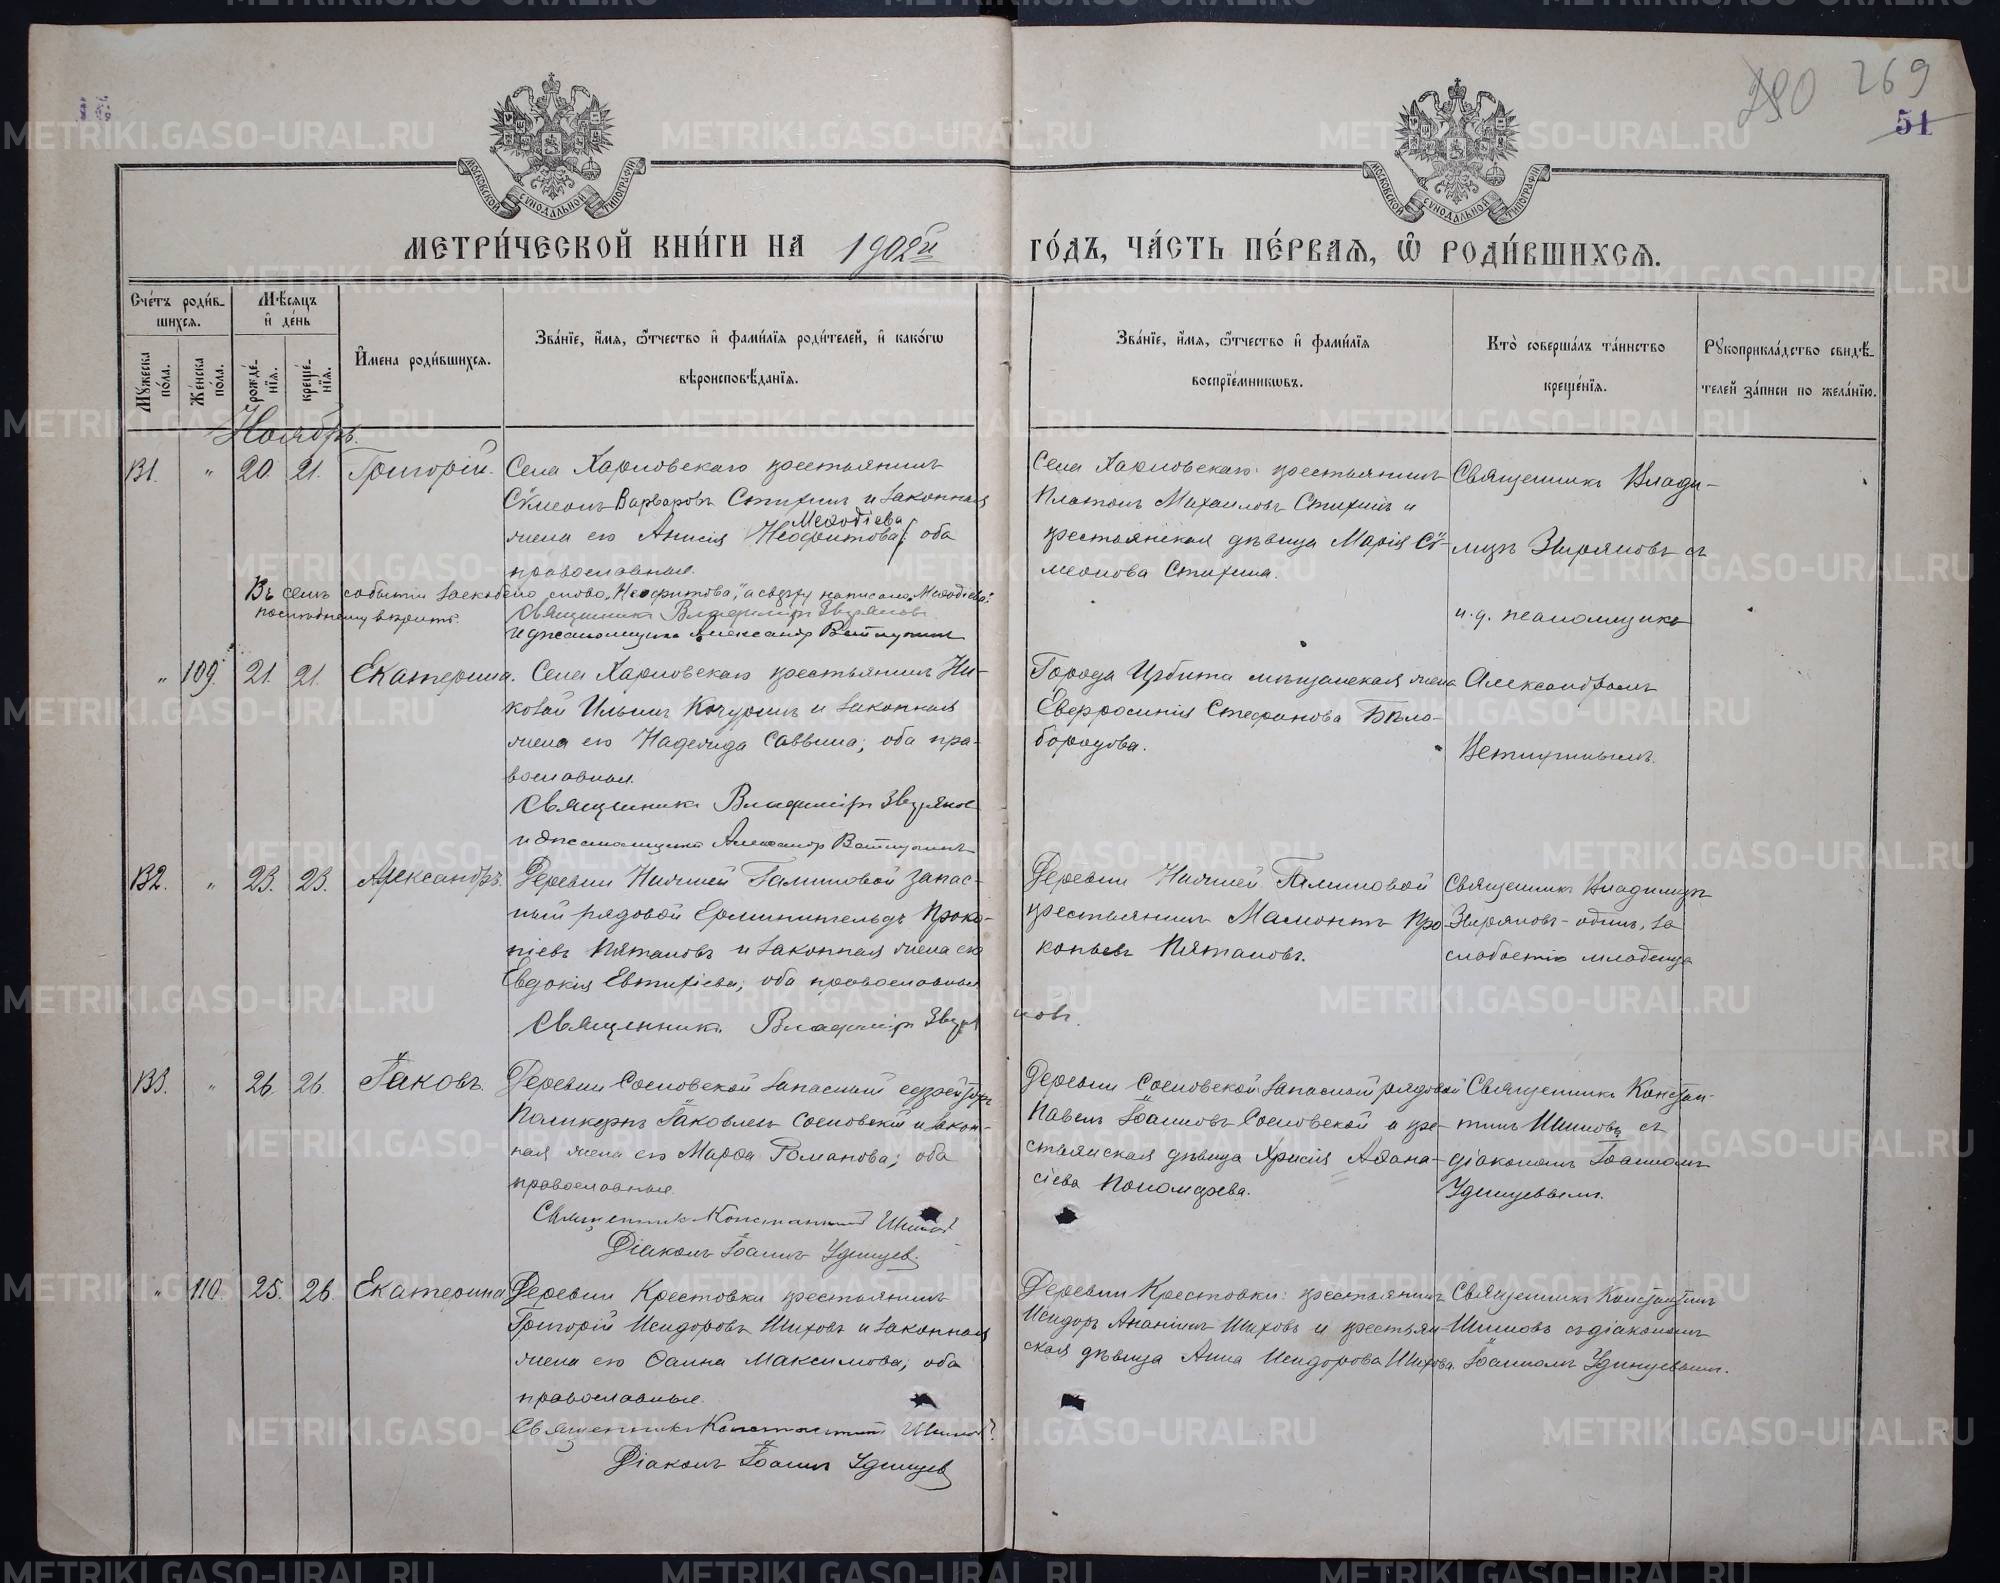 290 269
51
МОСКОВСКОЙ СѴНОДАЛЬНОЙ ТИПОГРАФІИ
МОСКОВСКОЙ СѴНОДАЛЬНОЙ ТИПОГРАФІИ
МЕТРИ́ЧЕСКОЙ КНИ́ГИ НА 1902й ГО́ДЪ, ЧА́СТЬ ПЕ́РВАЯ, Ѽ РОДИ́ВШИХСЯ.
Сче́тъ роди́в-
шихся.
Мꙋ́жеска по́ла.
Же́нска по́ла.
Мѣ́сяцъ и де́нь
рожде́-нія.
креще́-нія.
И́мена роди́вшихся.
Зва́ніе, и́мя, ѻ́тчество и фами́лія роди́телей, и како́гѡ
вѣроисповѣ́данія.
Зва́ніе, и́мя, ѻ́тчество и фами́лія
воспріе́мникѡвъ.
Кто̀ соверша́лъ та́инство
креще́нія.
Рꙋкоприкла́дство свидѣ́-
телей за́писи по жела́нію.
Ноябрь.
131. " 20. 21. Григорій.
Села Харловскаго крестьянинъ
Сѵмеонъ Варваровъ Стихинъ и законная
Меѳодіева
жена его Анисія Неофитова; оба
православные.
Въ семъ событіи заскоблено слово „Неофитова“, а сверху написано „Меѳодіева“
последнему верить.
Священникъ Владиміръ Звѣряновъ
И д псаломщика Александръ Ветлугинъ
Села Харловскаго крестьянинъ
Платонъ Михаиловъ Стихинъ и
крестьянская дѣвица Марія Сѵ-
меонова Стихина.
Священникъ Влади-
міръ Звѣряновъ съ
и. д. псаломщика
Александромъ
Ветлугинымъ.
" 109. 21. 21. Екатерина.
Села Харловскаго крестьянинъ Ни-
колай Ильинъ Кочуринъ и законная
жена его Надежда Саввина; оба пра-
вославные.
Священникъ Владиміръ Звѣряновъ
И д псаломщика Александръ Ветлугинъ
Города Ирбита мѣщанская жена
Евфросинія Стефанова Бѣло-
бородова.
132. " 23. 23. Александръ.
Деревни Нижней Галишовой запас-
ный рядовой Ерминингельдъ Проко-
піевъ Пятановъ и законная жена его
Евдокія Евтихіева; оба православные
Священникъ Владиміръ Звѣряновъ.
Деревни Нижней Галишовой
крестьянинъ Мамонтъ Про-
копьевъ Пятановъ.
Священникъ Владиміръ
Звѣряновъ - одинъ, за
слабостію младенца
133. " 26. 26. Іаковъ.
Деревни Сосновской запасный
Поликарпъ Іаковлевъ Сосновскій и закон-
ная жена его Марѳа Романова; оба
православные.
Священникъ Константинъ Шишовъ
Діаконъ Іоаннъ Удинцев.
Деревни Сосновской запасный рядовой
Павелъ Іоанновъ Сосновской и кре-
стьянская дѣвица Хрисія Аѳана-
сіева Пономарева.
Священникъ Констан-
тинъ Шишовъ съ
діакономъ Іоанномъ
Удинцевымъ.
" 110. 25. 26. Екатерина
Деревни Крестовки крестьянинъ
Григорій Исидоровъ Шиховъ и законная
жена его Фаина Максимова; оба
православные.
Священникъ Константинъ Шишовъ
Діаконъ Іоаннъ Удинцев
Деревни Крестовки: крестьянинъ
Исидоръ Ананіинъ Шиховъ и крестьян-
ская дѣвица Анна Исидорова Шихова.
Священникъ Константинъ
Шишовъ съ діакономъ
Іоанномъ Удинцевымъ.
METRIKI.GASO-URAL.RU